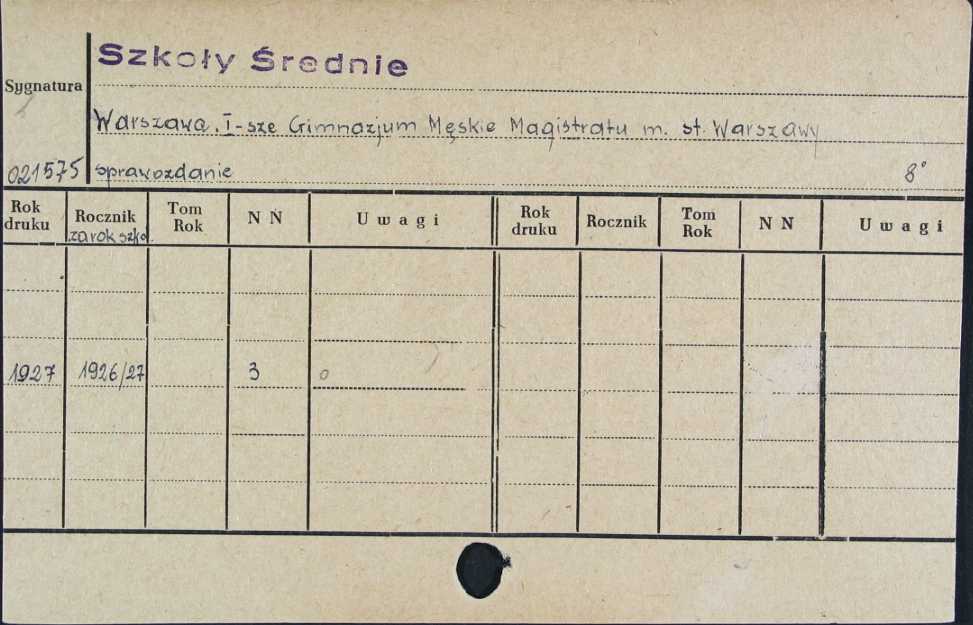 Szkoły Średnie
Sygnatura
Warszawa. I-sze Gimnazjum Męskie Magistratu m. st. Warszawy
021575 sprawozdanie 8°
Rok druku Rocznik za rok szkol. Tom Rok N N U w a g i Rok druku Rocznik Tom Rok N N U w a g i
1927 1926/27 3 o